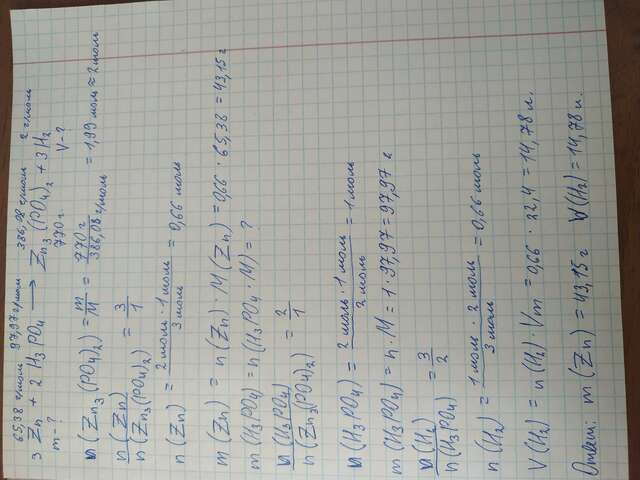 65,38 г/моль 97,97 г/моль 386,08 г/моль 2 г/моль
3 Zn + 2 H3PO4 → Zn3(PO4)2 + 3H2
m-? 770 г. V-?
n(Zn3(PO4)2) = m/M = 770 г/386,08 г/моль = 1,99 моль ≈ 2 моль
n(Zn)/n(Zn3(PO4)2) = 3/1
n(Zn) = 2 моль · 1 моль/3 моль = 0,66 моль
m(Zn) = n(Zn) · M(Zn) = 0,66 · 65,38 = 43,15 г
m(H3PO4) = n(H3PO4 · M) = ?
n(H3PO4)/n(Zn3(PO4)2) = 2/1
n(H3PO4) = 2 моль · 1 моль/2 моль = 1 моль
m(H3PO4) = n · M = 1 · 97,97 = 97,97 г
n(H2)/n(H3PO4) = 3/2
n(H2) = 1 моль · 2 моль/3 моль = 0,66 моль
V(H2) = n(H2) · Vm = 0,66 · 22,4 = 14,78 л.
Ответ: m(Zn) = 43,15 г V(H2) = 14,78 л.